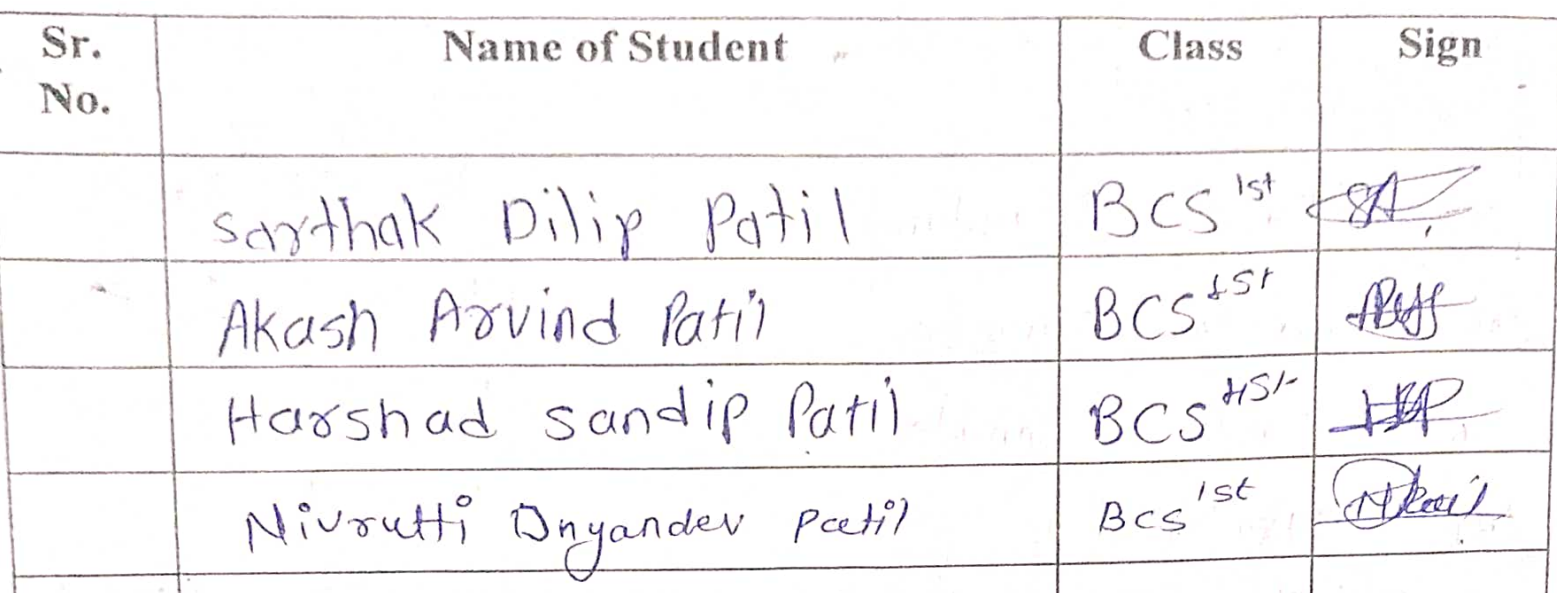 Sr. No. Name of Student Class Sign
Sarthak Dilip Patil BCS 1st
Akash Arvind Patil BCS 1st
Harshad Sandip Patil BCS 1st
Nivrutti Dnyandev Patil BCS 1st